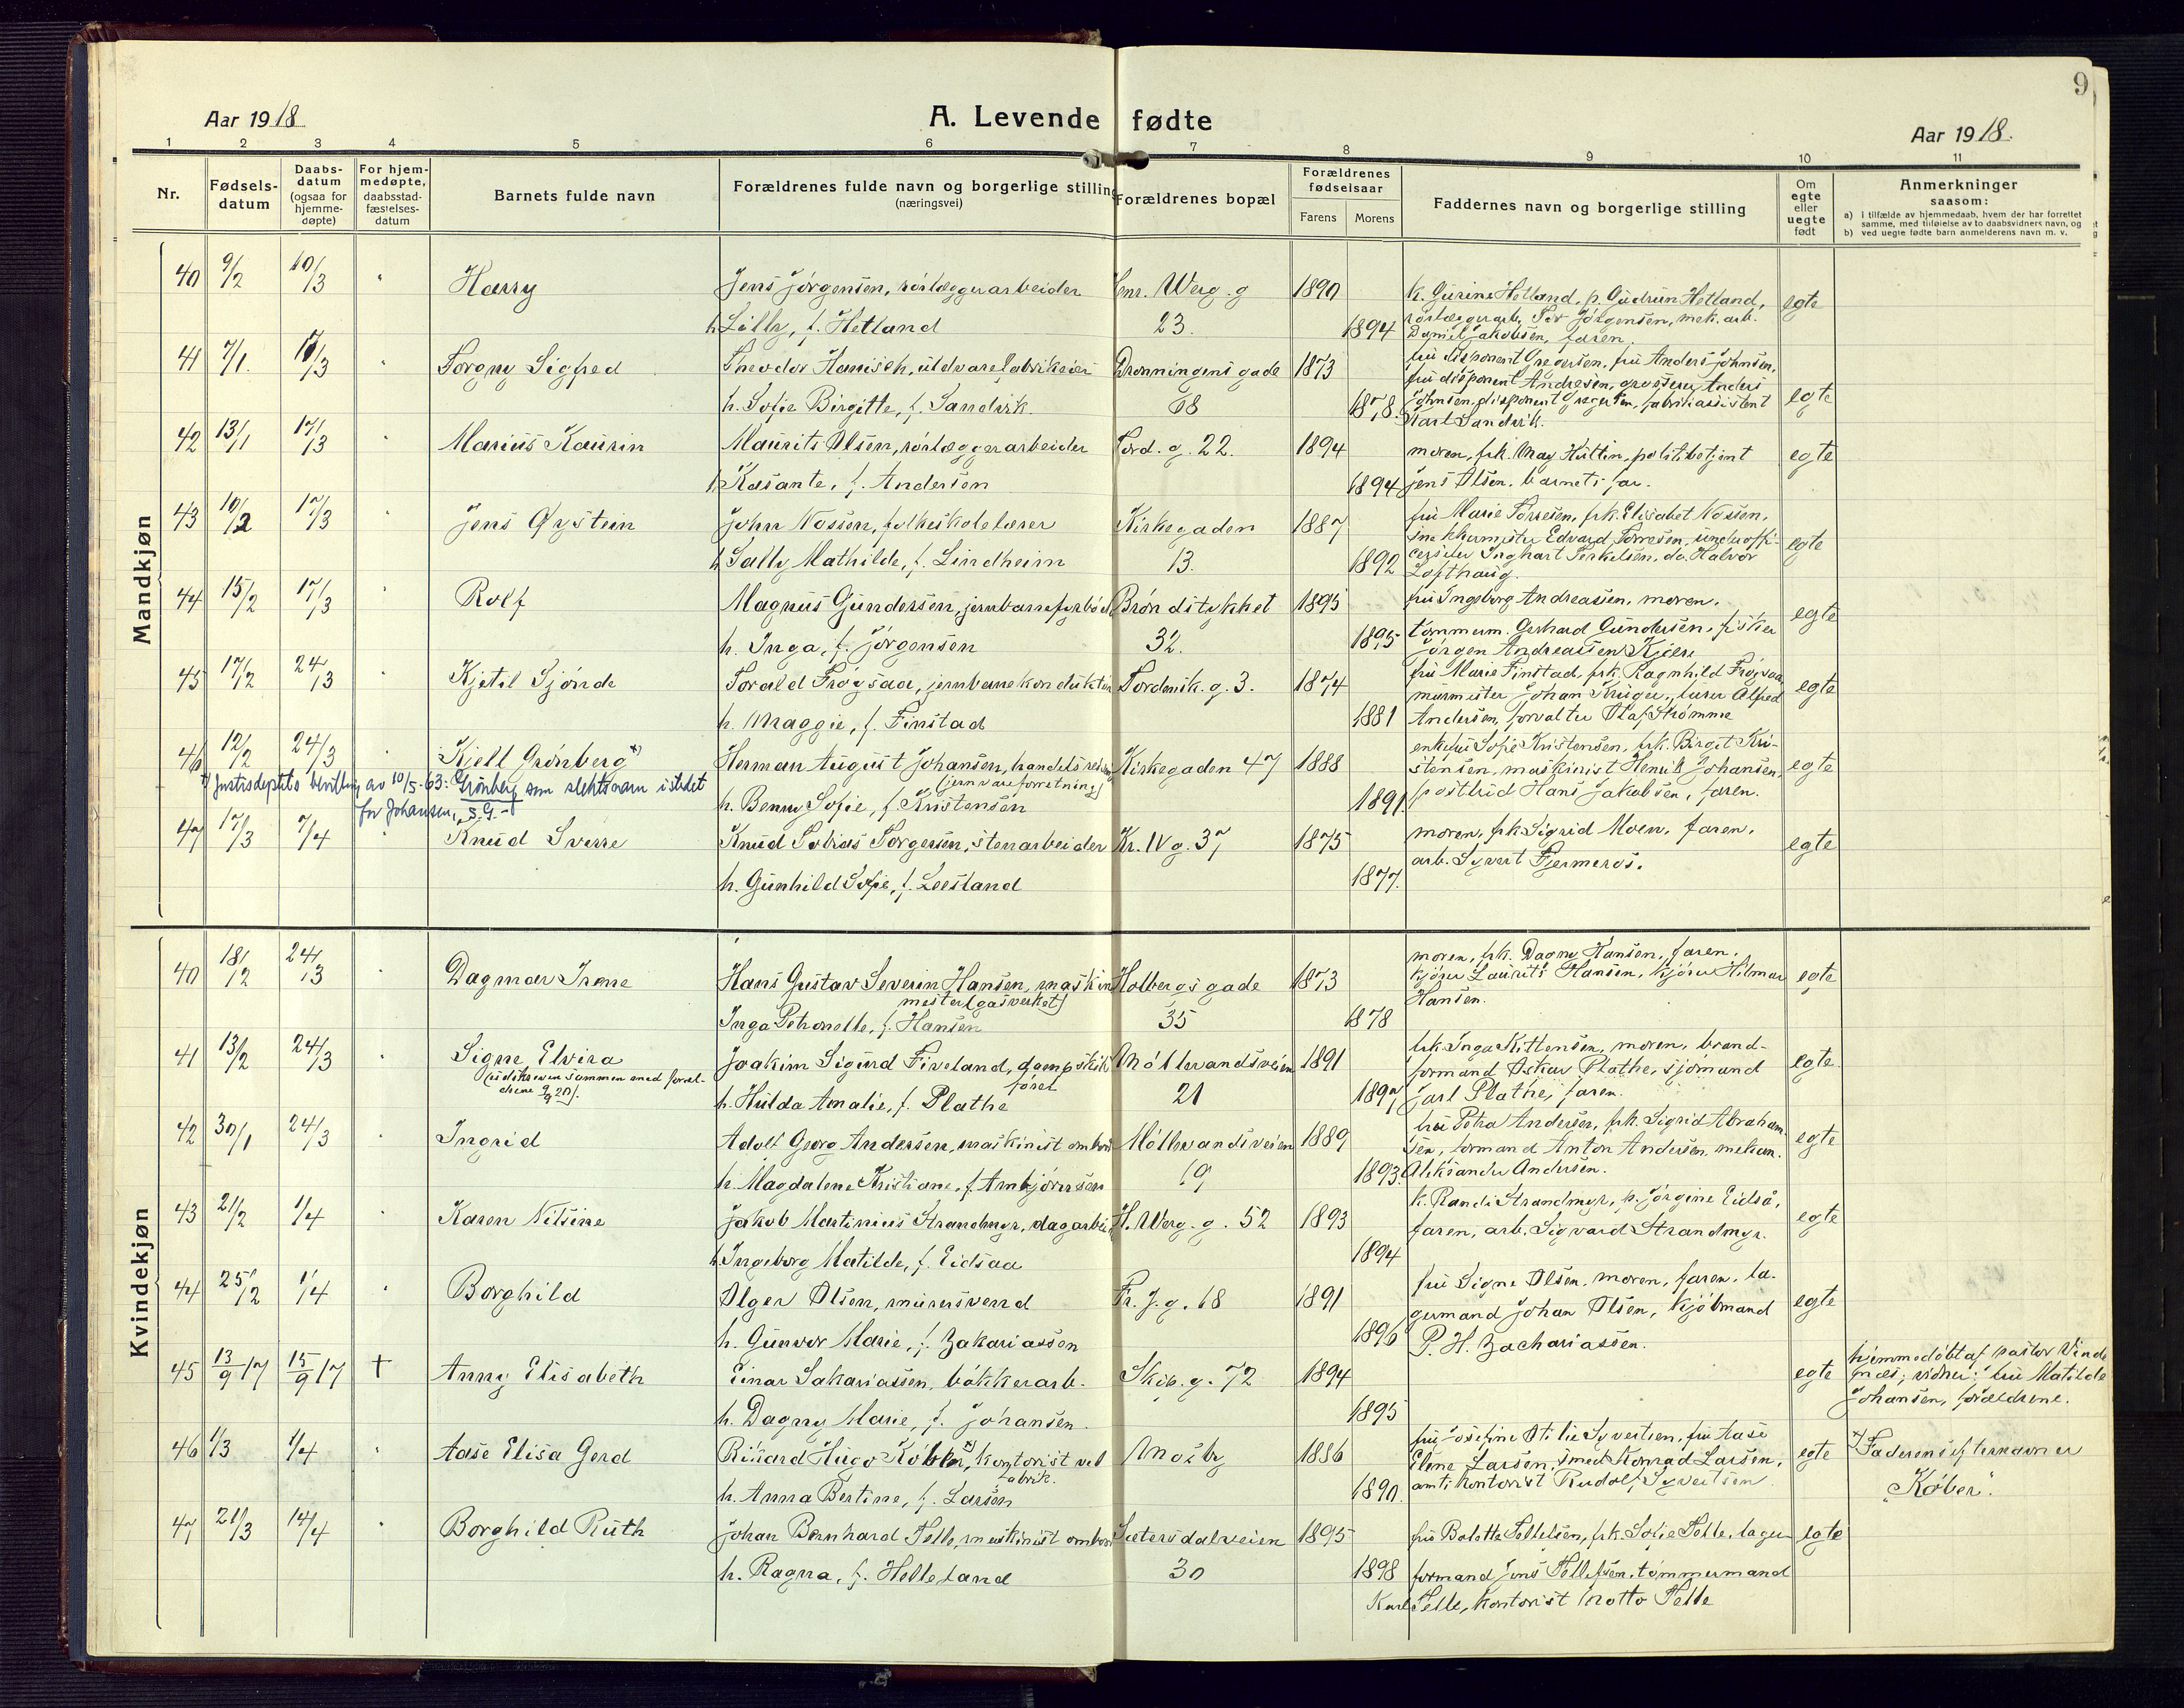 9
Aar 1918
A. Levende fødte
Aar 1918.
1 2 3 4 5 6 7 8 9 10 11
Nr.
Fødselsdatum
Daabsdatum (ogsaa for hjemmedøpte)
For hjemmedøpte, daabsstadfæstelsesdatum
Barnets fulde navn
Forældrenes fulde navn og borgerlige stilling (næringsvei)
Forældrenes bopæl
Forældrenes fødselsaar
Farens Morens
Faddernes navn og borgerlige stilling
Om egte eller uegte født
Anmerkninger saasom:
a) i tilfælde av hjemmedaab, hvem der har forrettet samme, med tilføielse av to daabsvidners navn, og
b) ved uegte fødte barn anmelderens navn m. v.
Mandkjøn
40 9/2 10/3 " Harry
Jens Jørgensen, rørlæggerarbeider
h. Lilly, f. Hetland
Henr. Werg. g 23.
1890 1894
k. Gurine Hetland, p. Gudrun Hetland,
rørlæggerarb. Tor Jørgensen, mek. arb.
Daniel Jakobsen, faren.
egte
41 7/1. 17/3 " Torgny Sigfred
Theodor Hanisch, uldvarefabrikeier
h. Sofie Birgitte, f. Sandvik.
Dronningensgade 68
1873 1878.
fru disponent Gregersen, fru Anders Johnsen,
fru disponent Andresen, grosserer Anders
Johnsen, disponent Gregersen, fabrikassistent
Karl Sandvik.
egte
42 13/1 17/3 " Marius Kaurin
Maurits Olsen, rørlæggerarbeider
h. Kasante, f. Andersen
Tord. g. 22.
1894 1894
moren, frk. May Hüttin, politibetjent
Jens Olsen, barnets far.
egte
43 10/2 17/3 " Jens Øystein
John Nossen, folkeskolelærer
h. Sally Mathilde, f. Lindheim
Kirkegaden 13.
1887 1892
fru Marie Torresen, frk. Elisabet Nossen,
Edvard Torresen, underoffi-
cerselev Inghart Terkelsen, do. Halvor
Lofthaug.
egte
44 15/2 17/3 " Rolf
Magnus Gundersen, jernbanefyrbøt.
h. Inga, f. Jørgensen
Brøndstykket 32.
1895 1895
fru Ingeborg Andreassen, moren,
tømmerm. Gerhard Gundersen, fisker
Jørgen Andreassen Kjære
egte
45 17/2 24/3 Kjetil Sjønde
Torald Frøysaa, jernbanekonduktør
h. Maggie, f. Finstad
Tordensk. g. 3.
1874 1881
fru Marie Finstad, frk. Ragnhild Frøysaa,
murmester Johan Krüger, lærer Alfred
Andersen, forvalter Olaf Strømme
egte
46 12/2 24/3 " Kjell Grønberg x)
Herman August Johansen, handelsreisen.
(jernvareforretning)
h. Benny Sofie, f. Kristensen
Kirkegaden 47
1888 1891.
enkefru Sofie Kristensen, frk. Birgit Kri-
stensen, maskinist Henrik Johansen,
postbud Hans Jakobsen, faren.
egte
x) Justisdeptets bevilling av 10/5-63: Grønberg som slektsnavn istedet
for Johansen, S.G.
47 17/3 7/4 " Knud Sverre
Knud Tobias Torgersen, stenarbeider
h. Gunhild Sofie, f. Leesland
Kr. IV g. 37
1875 1877.
moren, frk Sigrid Moen, faren,
arb. Syvert Fjermeros.
egte
Kvindekjøn
40 18/2 24/3 " Dagmar Irene
Hans Gustav Severin Hansen, maskin
mester (gasverket)
Inga Petronelle, f. Hansen
Holbergsgade 35
1873 1878
moren, frk. Dagny Hansen, faren,
kjører Laurits Hansen, kjører Hilmar
Hansen.
egte
41 13/2 24/3 " Signe Elvira
(utskreven sammen med foræl-
drene 20).
Joakim Sigurd Fiveland, dampskibs
fører
h. Hulda Amalie, f. Plathe
Møllevandsveien 21
1891 1897
frk. Inga Kittensen, moren, brand-
formand Oskar Plathe, sjømand
Jarl Plathe, faren.
egte.
42 30/1 24/3 " Ingrid
Adolf Georg Andersen, maskinist ombor
h. Magdalene Kristiane, f. Arnbjørnsen
Møllevandsveien 19
1889 1893.
fru Petra Andersen, frk. Sigrid Abraham-
sen, formand Anton Andersen, mekan.
Aleksander Andersen.
egte
43 21/2 1/4 Karen Nilsine
Jakob Martinius Strandmyr, dagarbei
h. Ingeborg Matilde, f. Eidsaa
H. Werg. g. 52
1893 1894
k. Randi Strandmyr, p. Jørgine Eidså,
faren, arb. Sigvard Strandmyr.
egte
44 25/2 1/4 " Borghild
Olger Olsen, murersvend
h. Gunvor Marie, f. Zakariassen
Fr. J. g. 68
1891 1896
fru Signe Olsen, moren, faren, la-
germand Johan Olsen, kjøbmand
P. H. Zachariassen.
egte
45 13/9 17 15/9 17 † Anny Elisabeth
Einar Sakariassen, bøkkerarb.
h. Dagny Marie, f. Johansen.
Skib. g. 72
1894 1895
egte
hjemmedøbt af pastor Vinde
næs; vidner: fru Matilde
Johansen, forældrene.
46 1/3 1/4 " Aase Elisa Gerd
Rikard Hugo Kobler x), kontorist ved
fabrik.
h. Anna Bertine, f. Larsen
Mosby
1886 1890.
fru Josefine Otilie Syvertsen, fru Aase
Elene Larsen, smed Konrad Larsen,
amtskontorist Rudolf Syvertsen
egte
x) Faderens efternavn er
"Køber".
47 21/3 14/4 " Borghild Ruth
Johan Bernhard Felle, maskinist ombor
h. Ragna, f. Helleland
Sætersdalsveien 30
1895 1898
fru Bolette Tellefsen, frk. Sofie Felle, lager-
formand Jens Tellefsen, tømmermand
Karl Felle, kontorist Motto Felle
egte